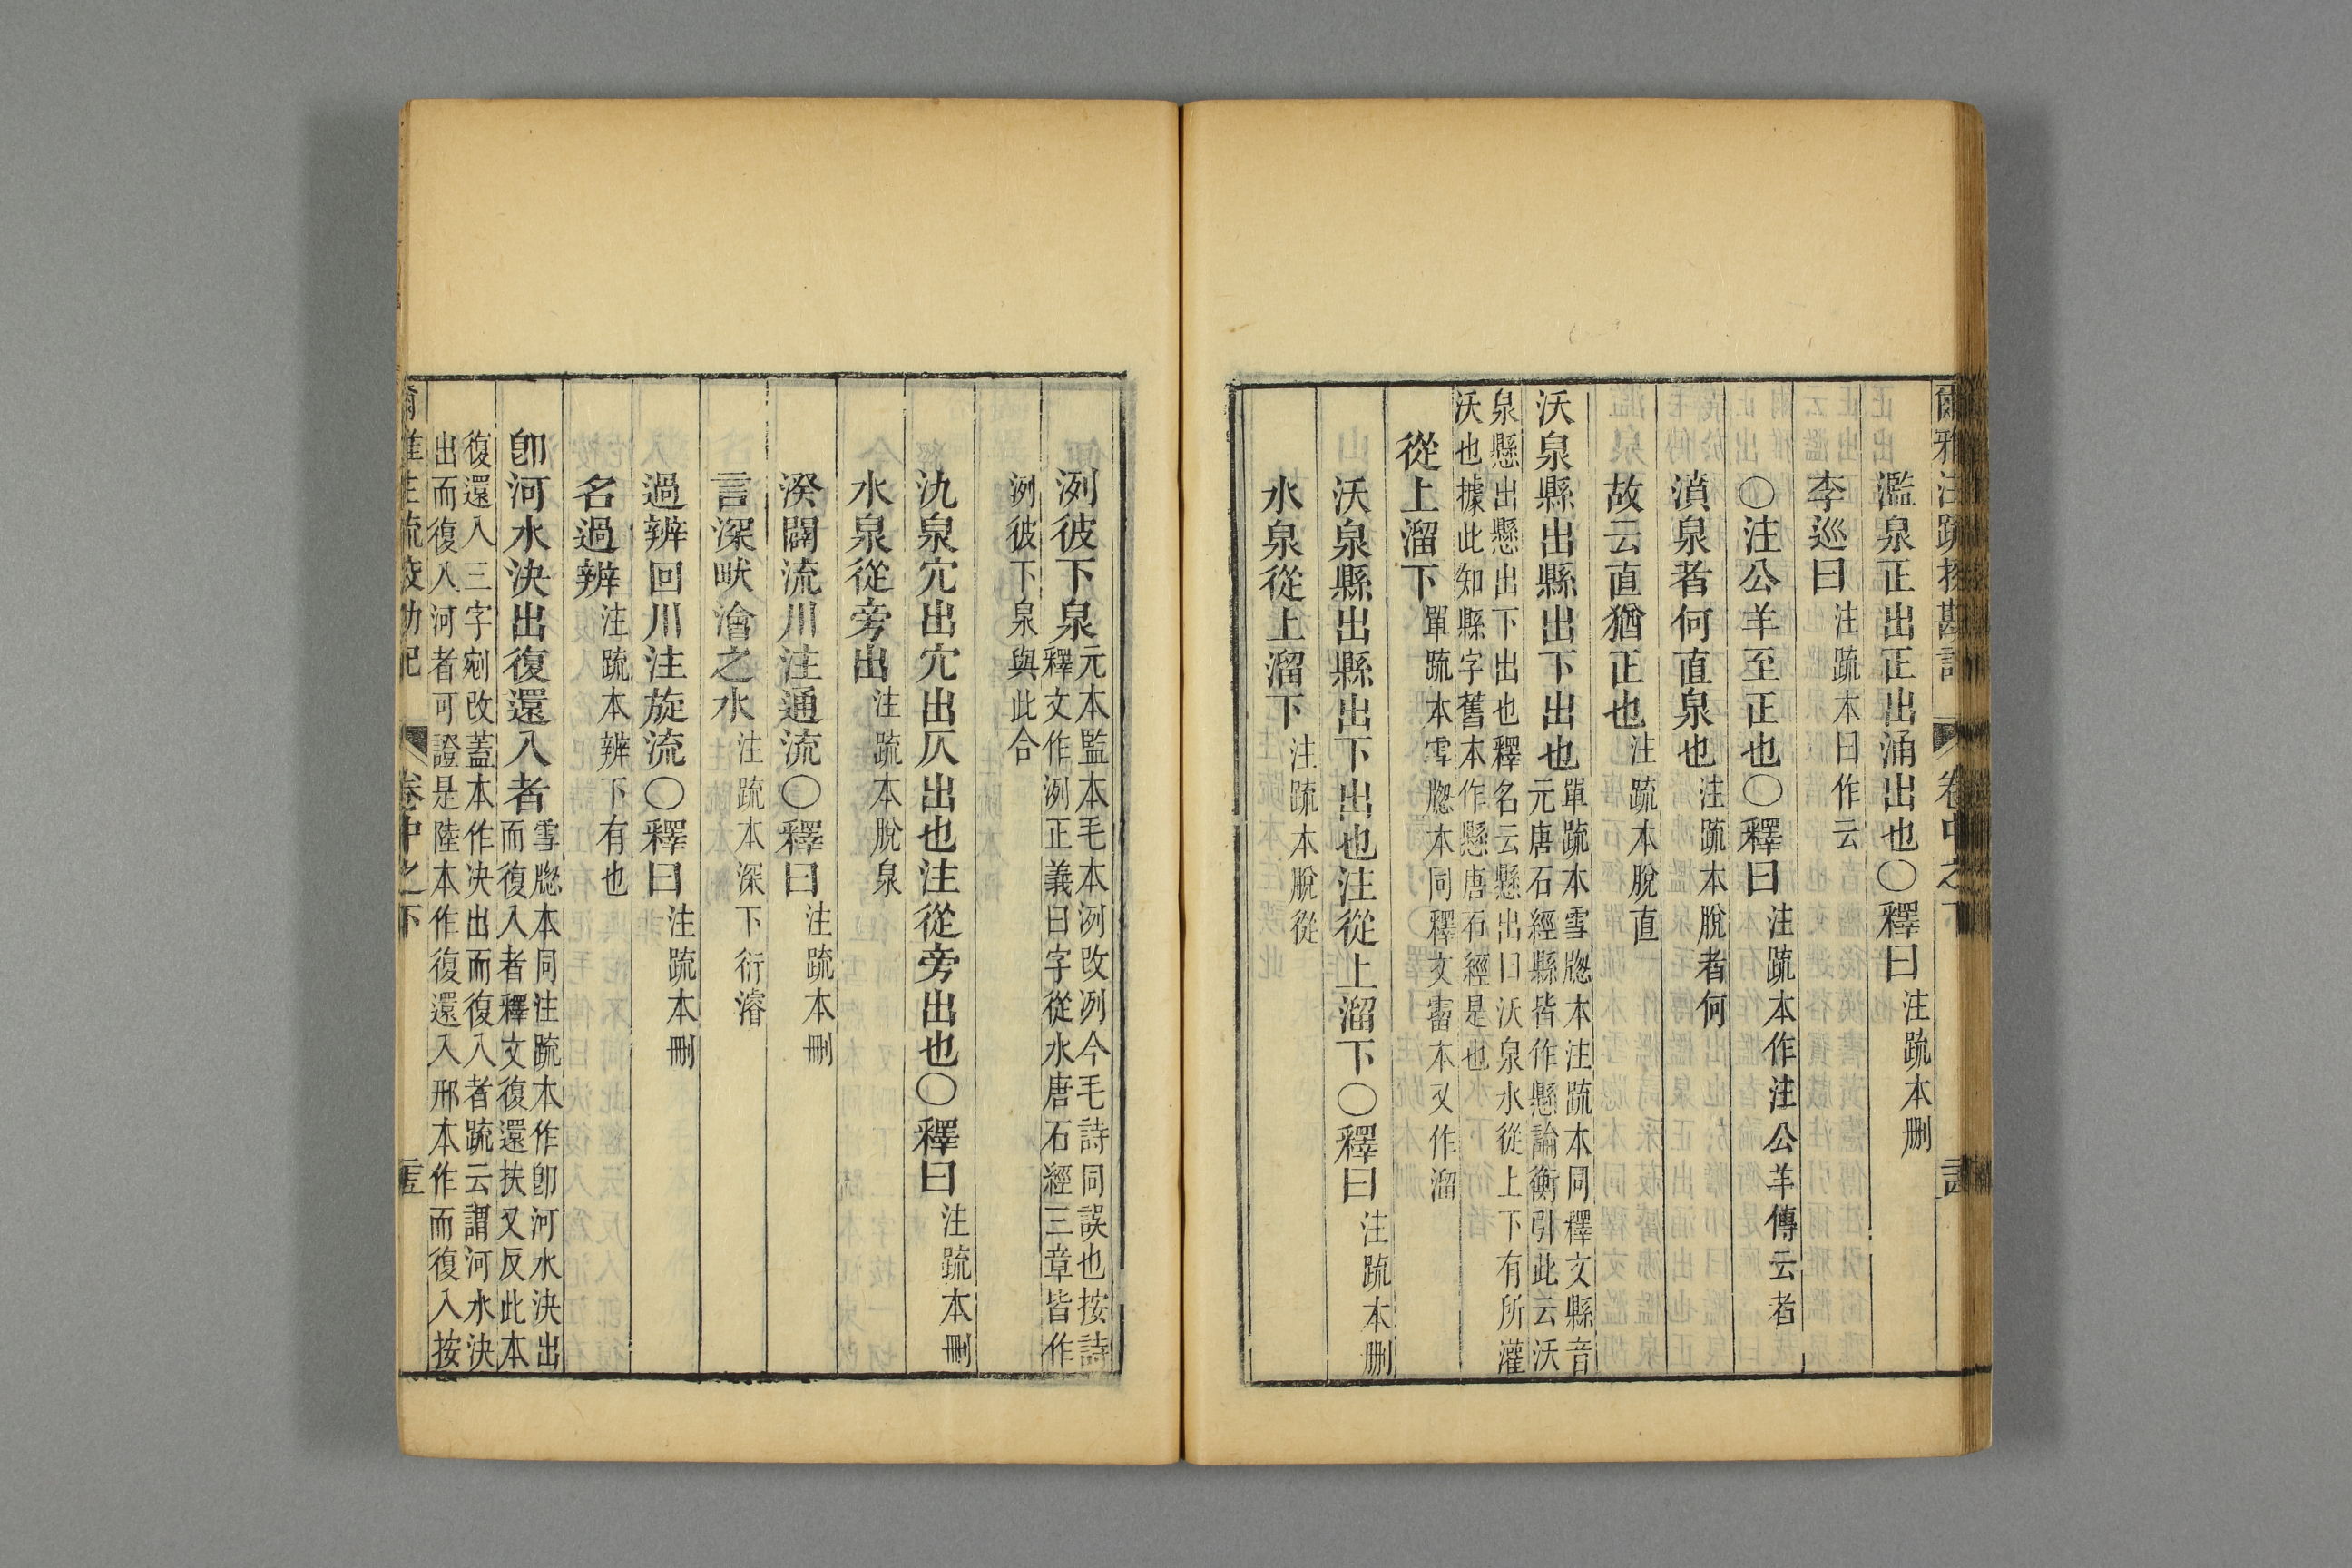 爾雅注疏挍勘記 卷中之下
濫泉正出正出涌出也〇釋曰注疏本删
李巡曰注疏本曰作云
〇注公羊至正也〇釋曰注疏本作注公羊傳云者
濆泉者何直泉也注疏本脫者何
故云直猶正也注疏本脫直
沃泉縣出縣出下出也單疏本雪牕本注疏本同釋文縣音
元唐石經縣皆作懸論衡引此云沃
泉懸出懸出下出也釋名云懸出曰沃泉水從上下有所灌
沃也據此知縣字舊本作懸唐石經是也
從上溜下單疏本雪牕本同釋文霤本又作溜
沃泉縣出縣出下出也注從上溜下〇釋曰注疏本删
水泉從上溜下注疏本脫從
洌彼下泉元本監本毛本洌改冽今毛詩同誤也按詩
釋文作洌正義曰字從水唐石經三章皆作
洌彼下泉與此合
氿泉穴出穴出仄出也注從旁出也〇釋曰注疏本刪
水泉從旁出注疏本脫泉
湀闢流川注通流〇釋曰注疏本刪
言深畎澮之水注疏本深下衍濬
過辨回川注旋流〇釋曰注疏本刪
名過辨注疏本辨下有也
卽河水決出復還入者雪牕本同注疏本作卽河水決出
而復入者釋文復還扶又反此本
復還入三字剜改蓋本作決出而復入者疏云謂河水決
出而復入河者可證是陸本作復還入邢本作而復入按
爾雅注疏挍勘記 卷中之下